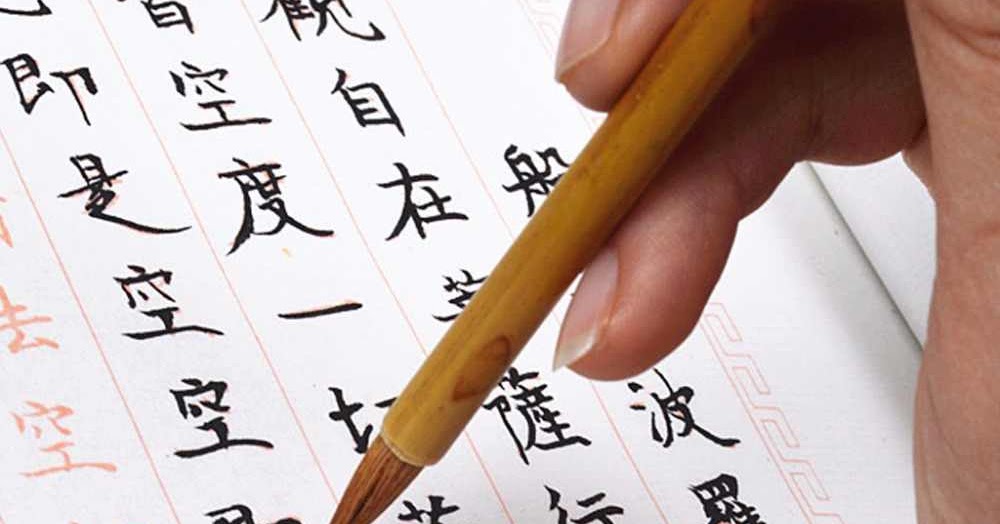 般波羅
觀自在菩薩行
皆空度一切苦
即是空空即
空